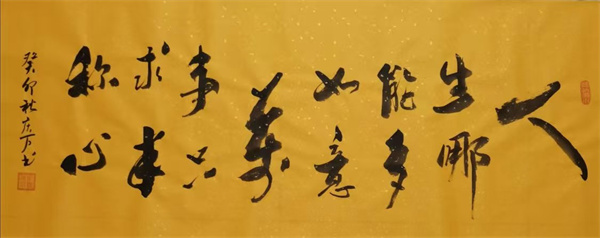 人
生哪
能多
如意
萬
事只
求半
称心
癸卯秋